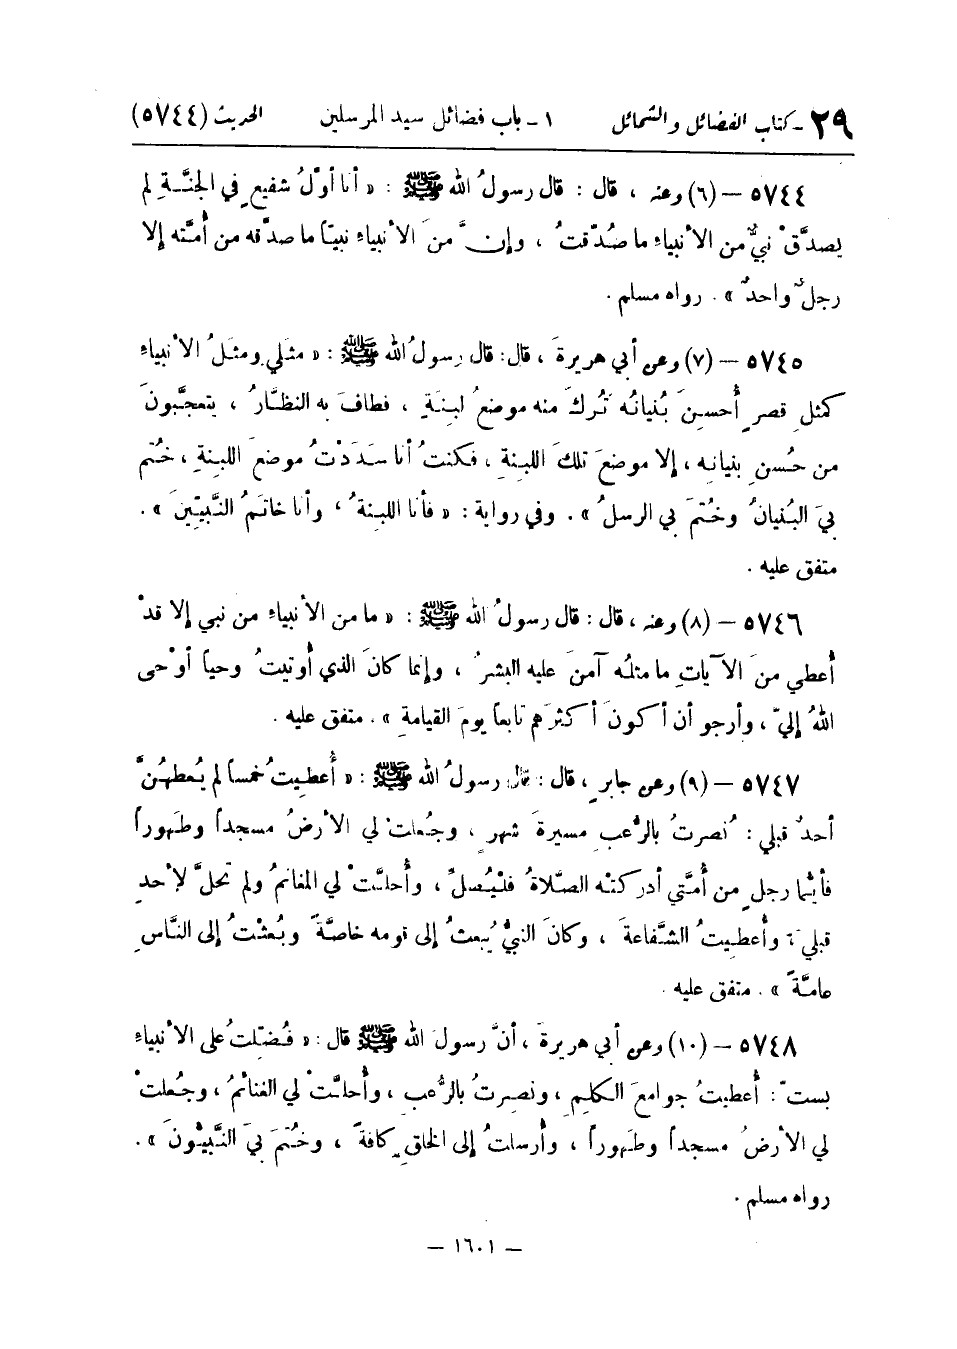 ٢٩ - كتاب الفضائل والشمائل ١ - باب فضائل سيد المرسلين الحديث (٥٧٤٤)
٥٧٤٤ – (٦) وعنه ، قال : قال رسولُ الله ﷺ : « أنا أوَّلُ شفيعٍ في الجنَّةِ لم
يصدَّقْ نبيٌّ من الأنبياءِ ما صُدِّقتُ ، وإنَّ منَ الأنبياءِ نبيّاً ما صدَّقه من أُمَّته إلا
رجلٌ واحدٌ » . رواه مسلم .
٥٧٤٥ – (٧) وعن أبي هريرةَ ، قال : قال رسولُ الله ﷺ : « مثَلي ومثَلُ الأنبياءِ
كمثلِ قصرٍ أُحسِنَ بُنيانُه تُركَ منه موضعُ لبِنَةٍ ، فطافَ به النظَّارُ ، يتعجَّبونَ
من حُسنِ بنيانِه ، إلا موضعَ تلكَ اللبِنةِ ، فكنتُ أنا سَدَدْتُ موضعَ اللبِنةِ ، خُتم
بيَ البُنيانُ وخُتمَ بي الرسلُ » . وفي رواية : « فأنا اللبِنةُ ، وأنا خاتَمُ النَّبيّينَ » .
متفق عليه .
٥٧٤٦ – (٨) وعنه ، قال : قال رسولُ الله ﷺ : « ما من الأنبياءِ من نبي إلا قدْ
أُعطي منَ الآياتِ ما مثلُه آمنَ عليه البشرُ ، وإنما كانَ الذي أُوتيتُ وحياً أوْحى
اللهُ إليّ ، وأرجو أن أكونَ أكثرَهم تابعاً يومَ القيامةِ » . متفق عليه .
٥٧٤٧ – (٩) وعن جابرٍ ، قال : قال رسولُ الله ﷺ : « أُعطيتُ خمساً لم يُعطهُنَّ
أحدٌ قبلي : نُصرتُ بالرُّعبِ مسيرةَ شهرٍ ، وجُعلتْ لي الأرضُ مسجداً وطَهوراً
فأيُّما رجلٍ من أُمَّتي أدركتْه الصَّلاةُ فلْيُصلِّ ، وأُحلَّتْ لي المغانمُ ولم تحلَّ لأحدٍ
قبلي ، وأُعطيتُ الشَّفاعةَ ، وكانَ النبيُّ يُبعثُ إلى قومه خاصَّةً وبُعثْتُ إلى النَّاسِ
عامَّةً » . متفق عليه .
٥٧٤٨ – (١٠) وعن أبي هريرةَ ، أنَّ رسولَ الله ﷺ قال : « فُضِّلتُ على الأنبياءِ
بستٍّ : أُعطيتُ جوامعَ الكلِمِ ، ونصِرتُ بالرُّعبِ ، وأُحلَّتْ لي الغنائمُ ، وجُعلتْ
لي الأرضُ مسجداً وطَهوراً ، وأُرسلتُ إلى الخلقِ كافةً ، وخُتمَ بيَ النَّبيُّونَ » .
رواه مسلم .
– ١٦٠١ –